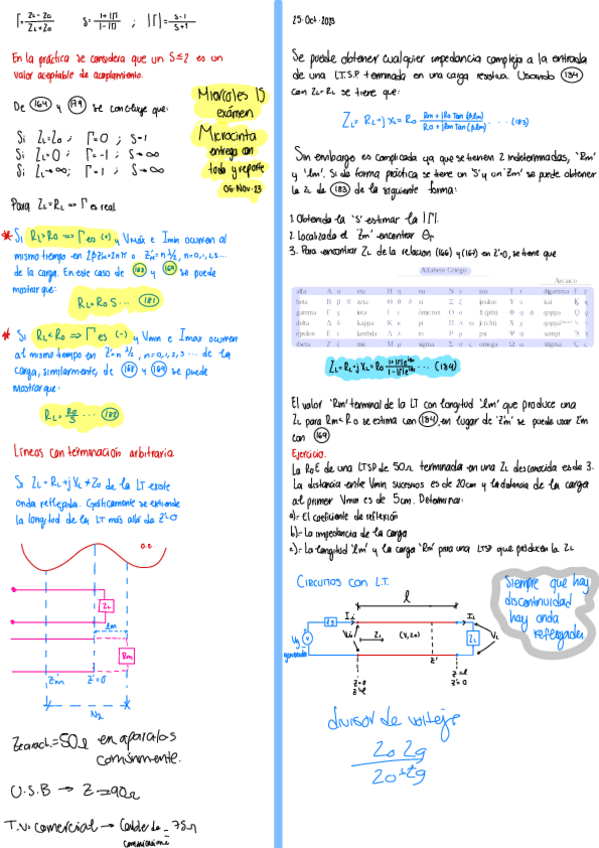 Γ = (ZL - Z0)/(ZL + Z0) S = (1+|Γ|)/(1-|Γ|) ; |Γ| = (S-1)/(S+1)
En la práctica se considera que un S≤2 es un
valor aceptable de acoplamiento.
Miercoles 15
exámen
Microcinta
entrega con
todo y reporte
06·Nov·23
De (164) y (179) se concluye que:
Si ZL=Z0 ; Γ=0 ; S=1
Si ZL=0 ; Γ=-1 ; S→∞
Si ZL→∞; Γ=1 ; S→∞
Para ZL=RL ⇒ Γ es real
* Si RL>R0 ⇒ Γ es (+) y Vmáx e Imin ocurren al
mismo tiempo en
de la carga. En este caso de y se puede
mostrar que:
RL=R0 S ··· (181)
* Si RL<R0 ⇒ Γ es (-) y Vmin e Imax ocurren
al mismo tiempo en Z'=n λ/2, n=0,1,2,3 ··· de la
carga, similarmente, de (168) y (169) se puede
mostrar que:
RL=R0/S ··· (182)
Líneas con terminación arbitraria.
Si ZL=RL+jXL≠Z0 de la LT existe
onda reflejada. Gráficamente se extiende
la longitud de la LT más allá de Z'=0
ZL
lm
Rm
Z'm Z'=0
λ/2
Zcaract.=50Ω en aparatos
comúnmente.
U.S.B → Z=90Ω
T.V. comercial → = 75Ω
25·Oct·2023
Se puede obtener cualquier impedancia compleja a la entrada
de una L.T.S.P terminada en una carga resistiva. Usando (134)
con ZL=RL se tiene que:
ZL = RL+jXL = R0 (Rm + jR0 Tan(βlm))/(R0 + jRm Tan(βlm)) ··· (183)
Sin embargo es complicada ya que se tienen 2 indeterminadas, 'Rm'
y 'lm'. Si de forma práctica se tiene un 'S' y un 'Zm' se puede obtener
la ZL de (183) de la siguiente forma:
1. Obtenida la 'S' estimar la |Γ|.
2. Localizado el 'Zm' encontrar θΓ
3. Para encontrar ZL de la relación (166) y (167) en Z'=0, se tiene que
Alfabeto Griego
Arcaico
alfa Α α eta Η η nu Ν ν tau Τ τ digamma Ϝ ϛ
beta Β β ϐ zeta Θ θ ϑ xi Ξ ξ ípsilon Υ υ
gamma Γ γ iota Ι ι ómicron Ο ο fi (phi) Φ φ qoppa
delta Δ δ kappa Κ κ pi Π π ji (chi) Χ χ qoppa
épsilon Ε lambda Λ λ ro Ρ ρ psi Ψ ψ sampi
dseta Ζ ζ mu Μ μ sigma Σ σ ς omega Ω ω stigma
ZL=RL+jXL=R0 ··· (184)
El valor 'Rm' terminal de la LT con longitud 'lm' que produce una
ZL para Rm<R0 se estima con (184), en lugar de 'Z'm' se puede usar Z'm
con (169)
Ejercicio.
La RoE de una LTSP de 50Ω terminada en una ZL desconocida es de 3.
La distancia entre Vmin sucesivos es de 20cm y la distancia de la carga
al primer Vmin es de 5cm. Determinar:
a).- El coeficiente de reflexión
b).- La impedancia de la carga
c).- La longitud 'lm' y la carga 'Rm' para una LTSP que produzca la ZL
Circuitos con L.T.
Siempre que hay
discontinuidad
hay onda
reflejada
l
Zg Ii IL
Vg
generador
Vi Zi (γ, Z0) ZL VL
Z'
Z=0
Z'=l
Z=l
Z'=0
divisor de voltaje
Z0 Zg
Z0+Zg